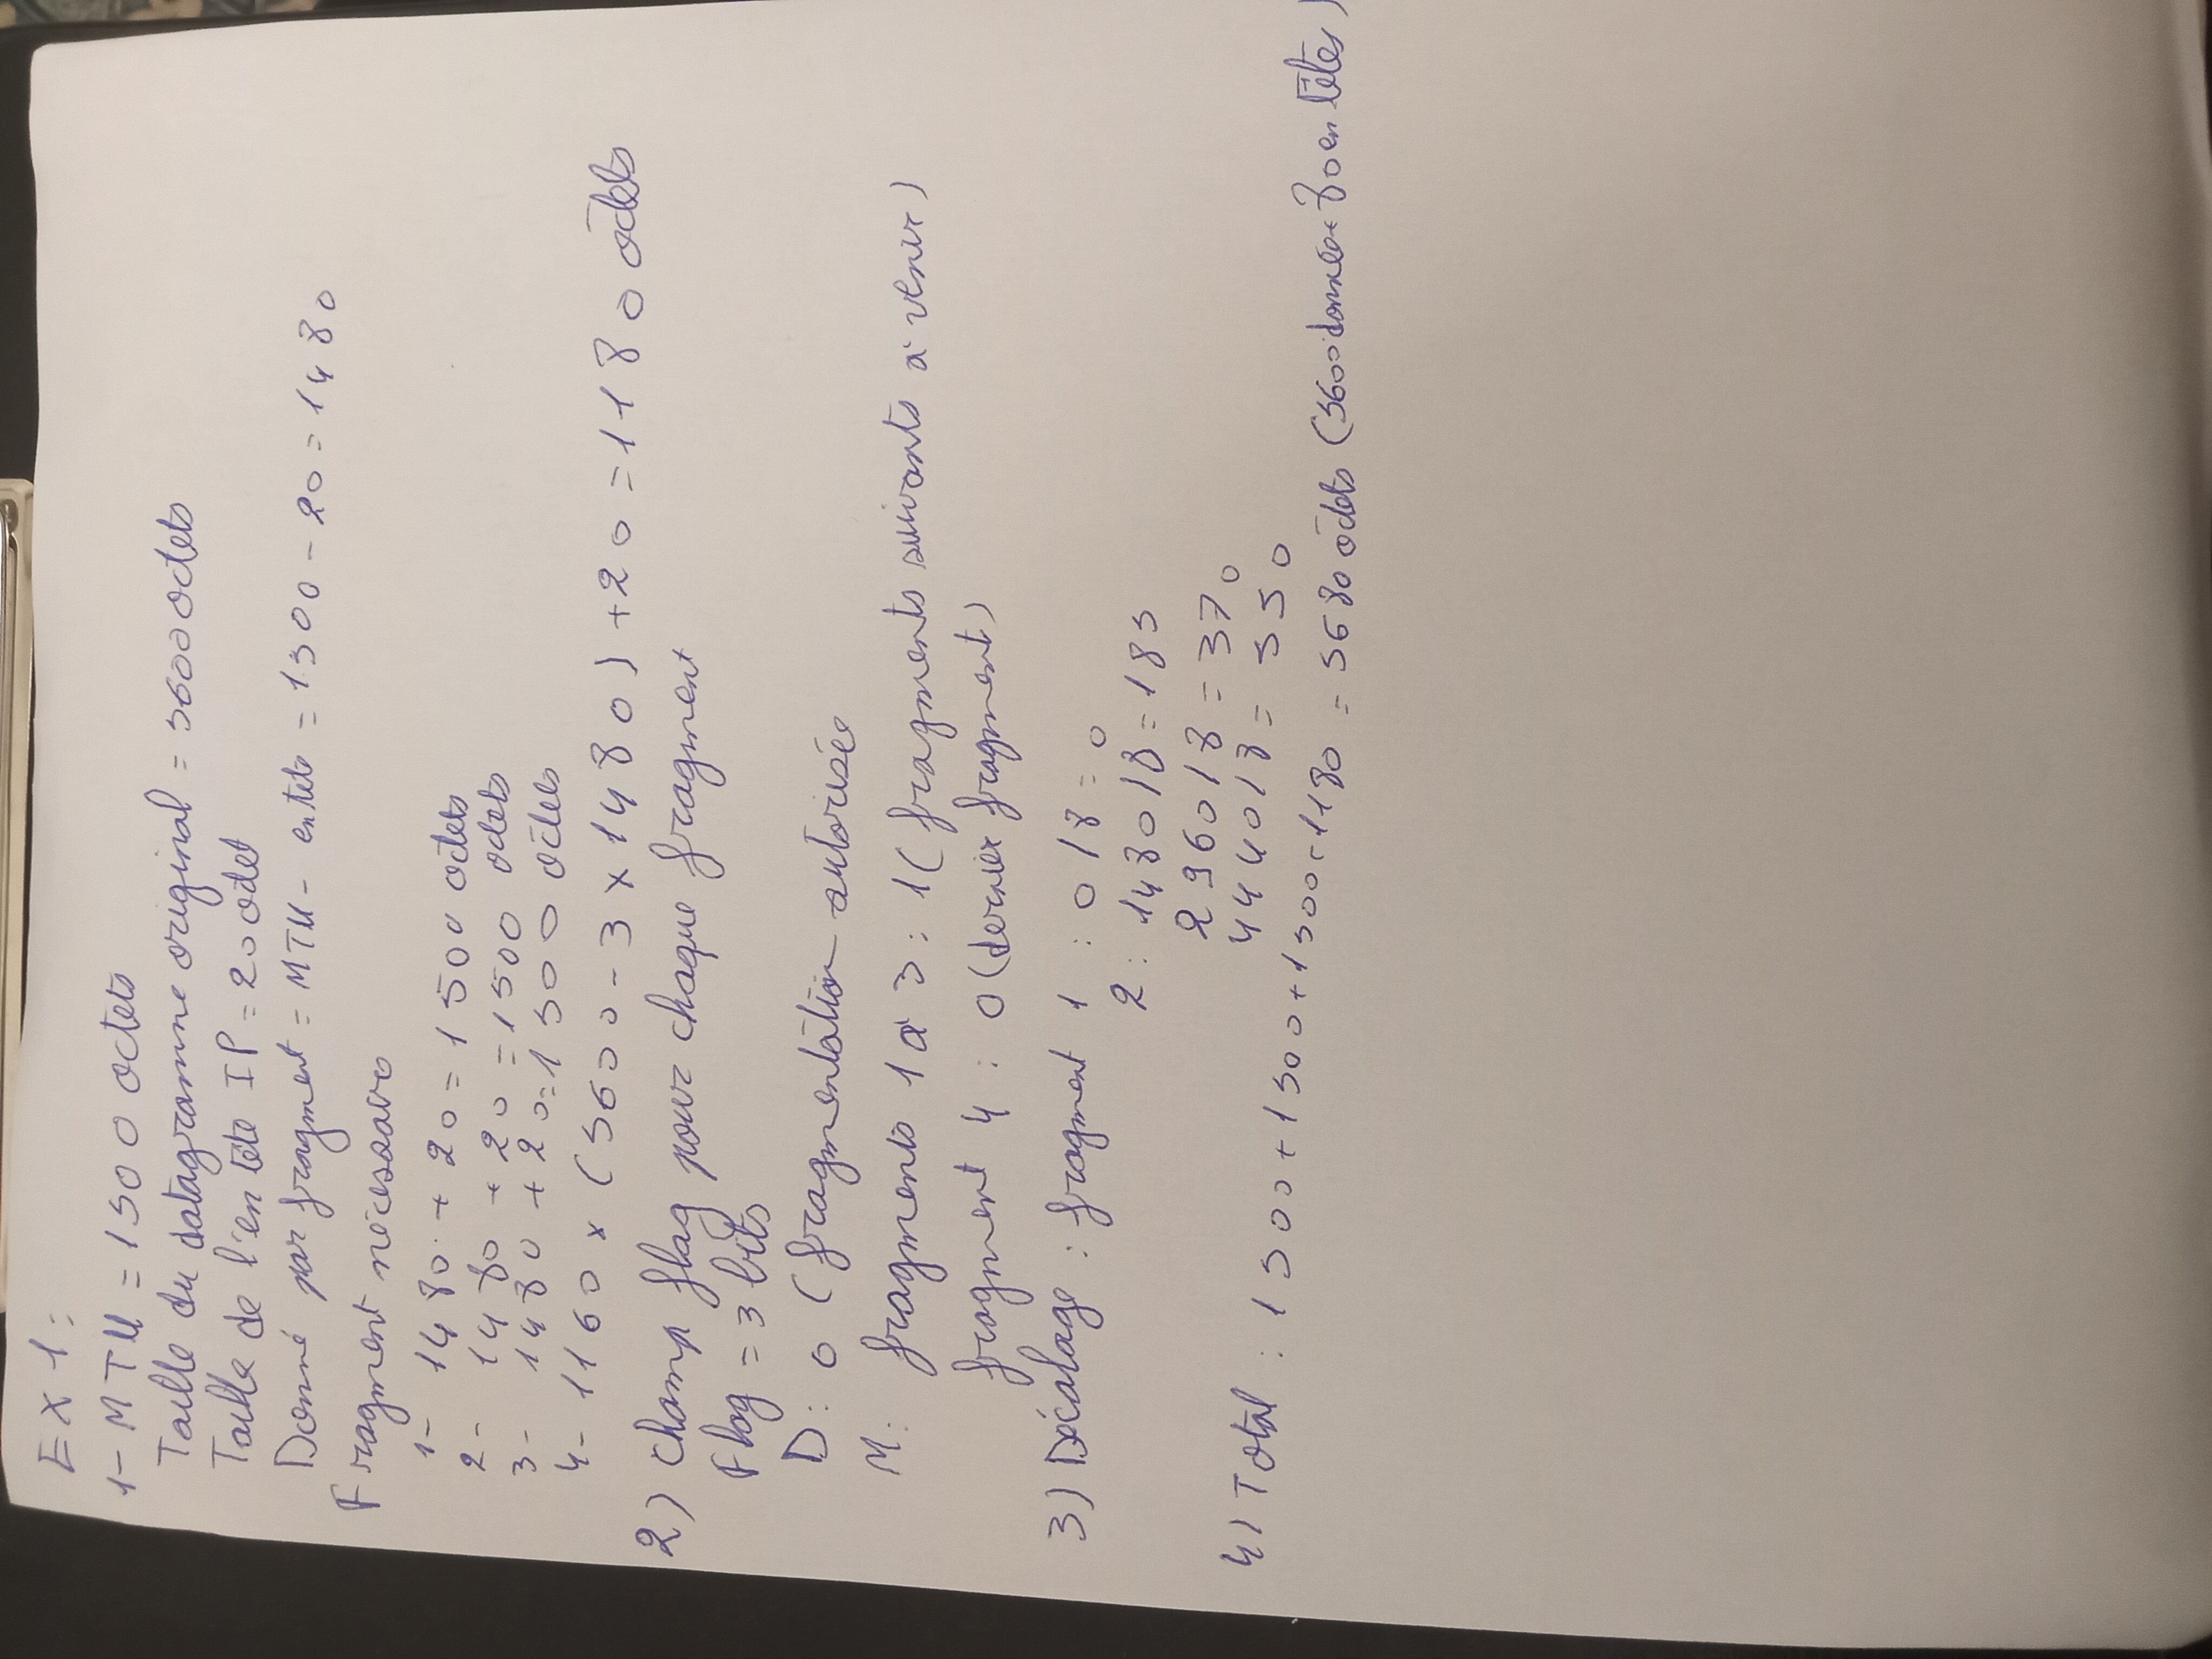 EX 1:
1- MTU = 1500 octets
Taille du datagramme original = 5600 octets
Taille de l'en tête IP = 20 octet
Donné par fragment = MTU - entete = 1500 - 20 = 1480
Fragment nécessaire
1- 1480 + 20 = 1500 octets
2- 1480 + 20 = 1500 octets
3- 1480 + 20 = 1500 octets
4- 1160 x (5600 - 3 x 1480) + 20 = 1180 octets
2) champ flag pour chaque fragment
Flag = 3 bits
D: 0 (fragmentation autorisée
M: fragments 1 à 3 : 1 (fragments suivants à venir)
fragment 4 : 0 (dernier fragment)
3) Décalage : fragment 1 : 0/8 = 0
2: 1480/8 = 185
2960/8 = 370
4440/8 = 550
4) Total : 1500 + 1500 + 1500 + 1180 = 5680 octets (5600 donnée + 80 en têtes)